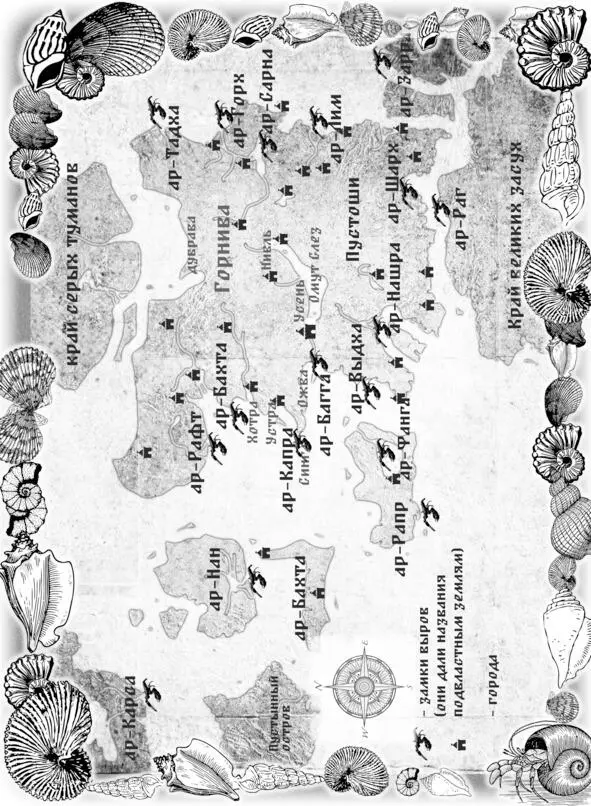 край серых туманов
ар-Карал
ар-Тадха
дубрава
ар-Рафт
ар-Нан
Горнива
ар-Бахта
ар-Горх
Хотра
ар-Сарна
Нивль
Устра
Пустынный
остров
ар-Капра
ар-Бахта
Ожва
Усень
Омут Слез
ар-Багта
ар-Лим
Пустоши
ар-Выдха
ар-Нашра
ар-Шарх
ар-Рапр
ар-Фанга
ар-Зарра
ар-Раг
Край великих засух
N
W
E
S
- замки выров
(они дали названия
подвластным землям)
- города